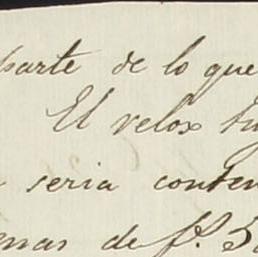 parte de lo que
El velox
seria conten
mas de